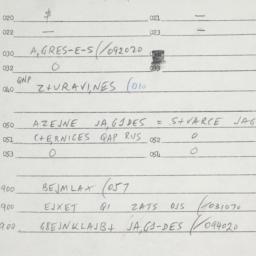 020. $ 021. —
022. — 023. —
030 A,GRES-E-S(/092020
032 0
GNP
040. Z+URAVINES (010
050 AZEJNE JA,G1DES = S+VARCE JAG
051 C+ERNICES GAP RUS 052 0
053 0 054 0
900 BEJMLAX (057
900 EJXET GI ZATS DJS (/031070
900 GBEJNKLAJB+ JA,G1-DES (/094020